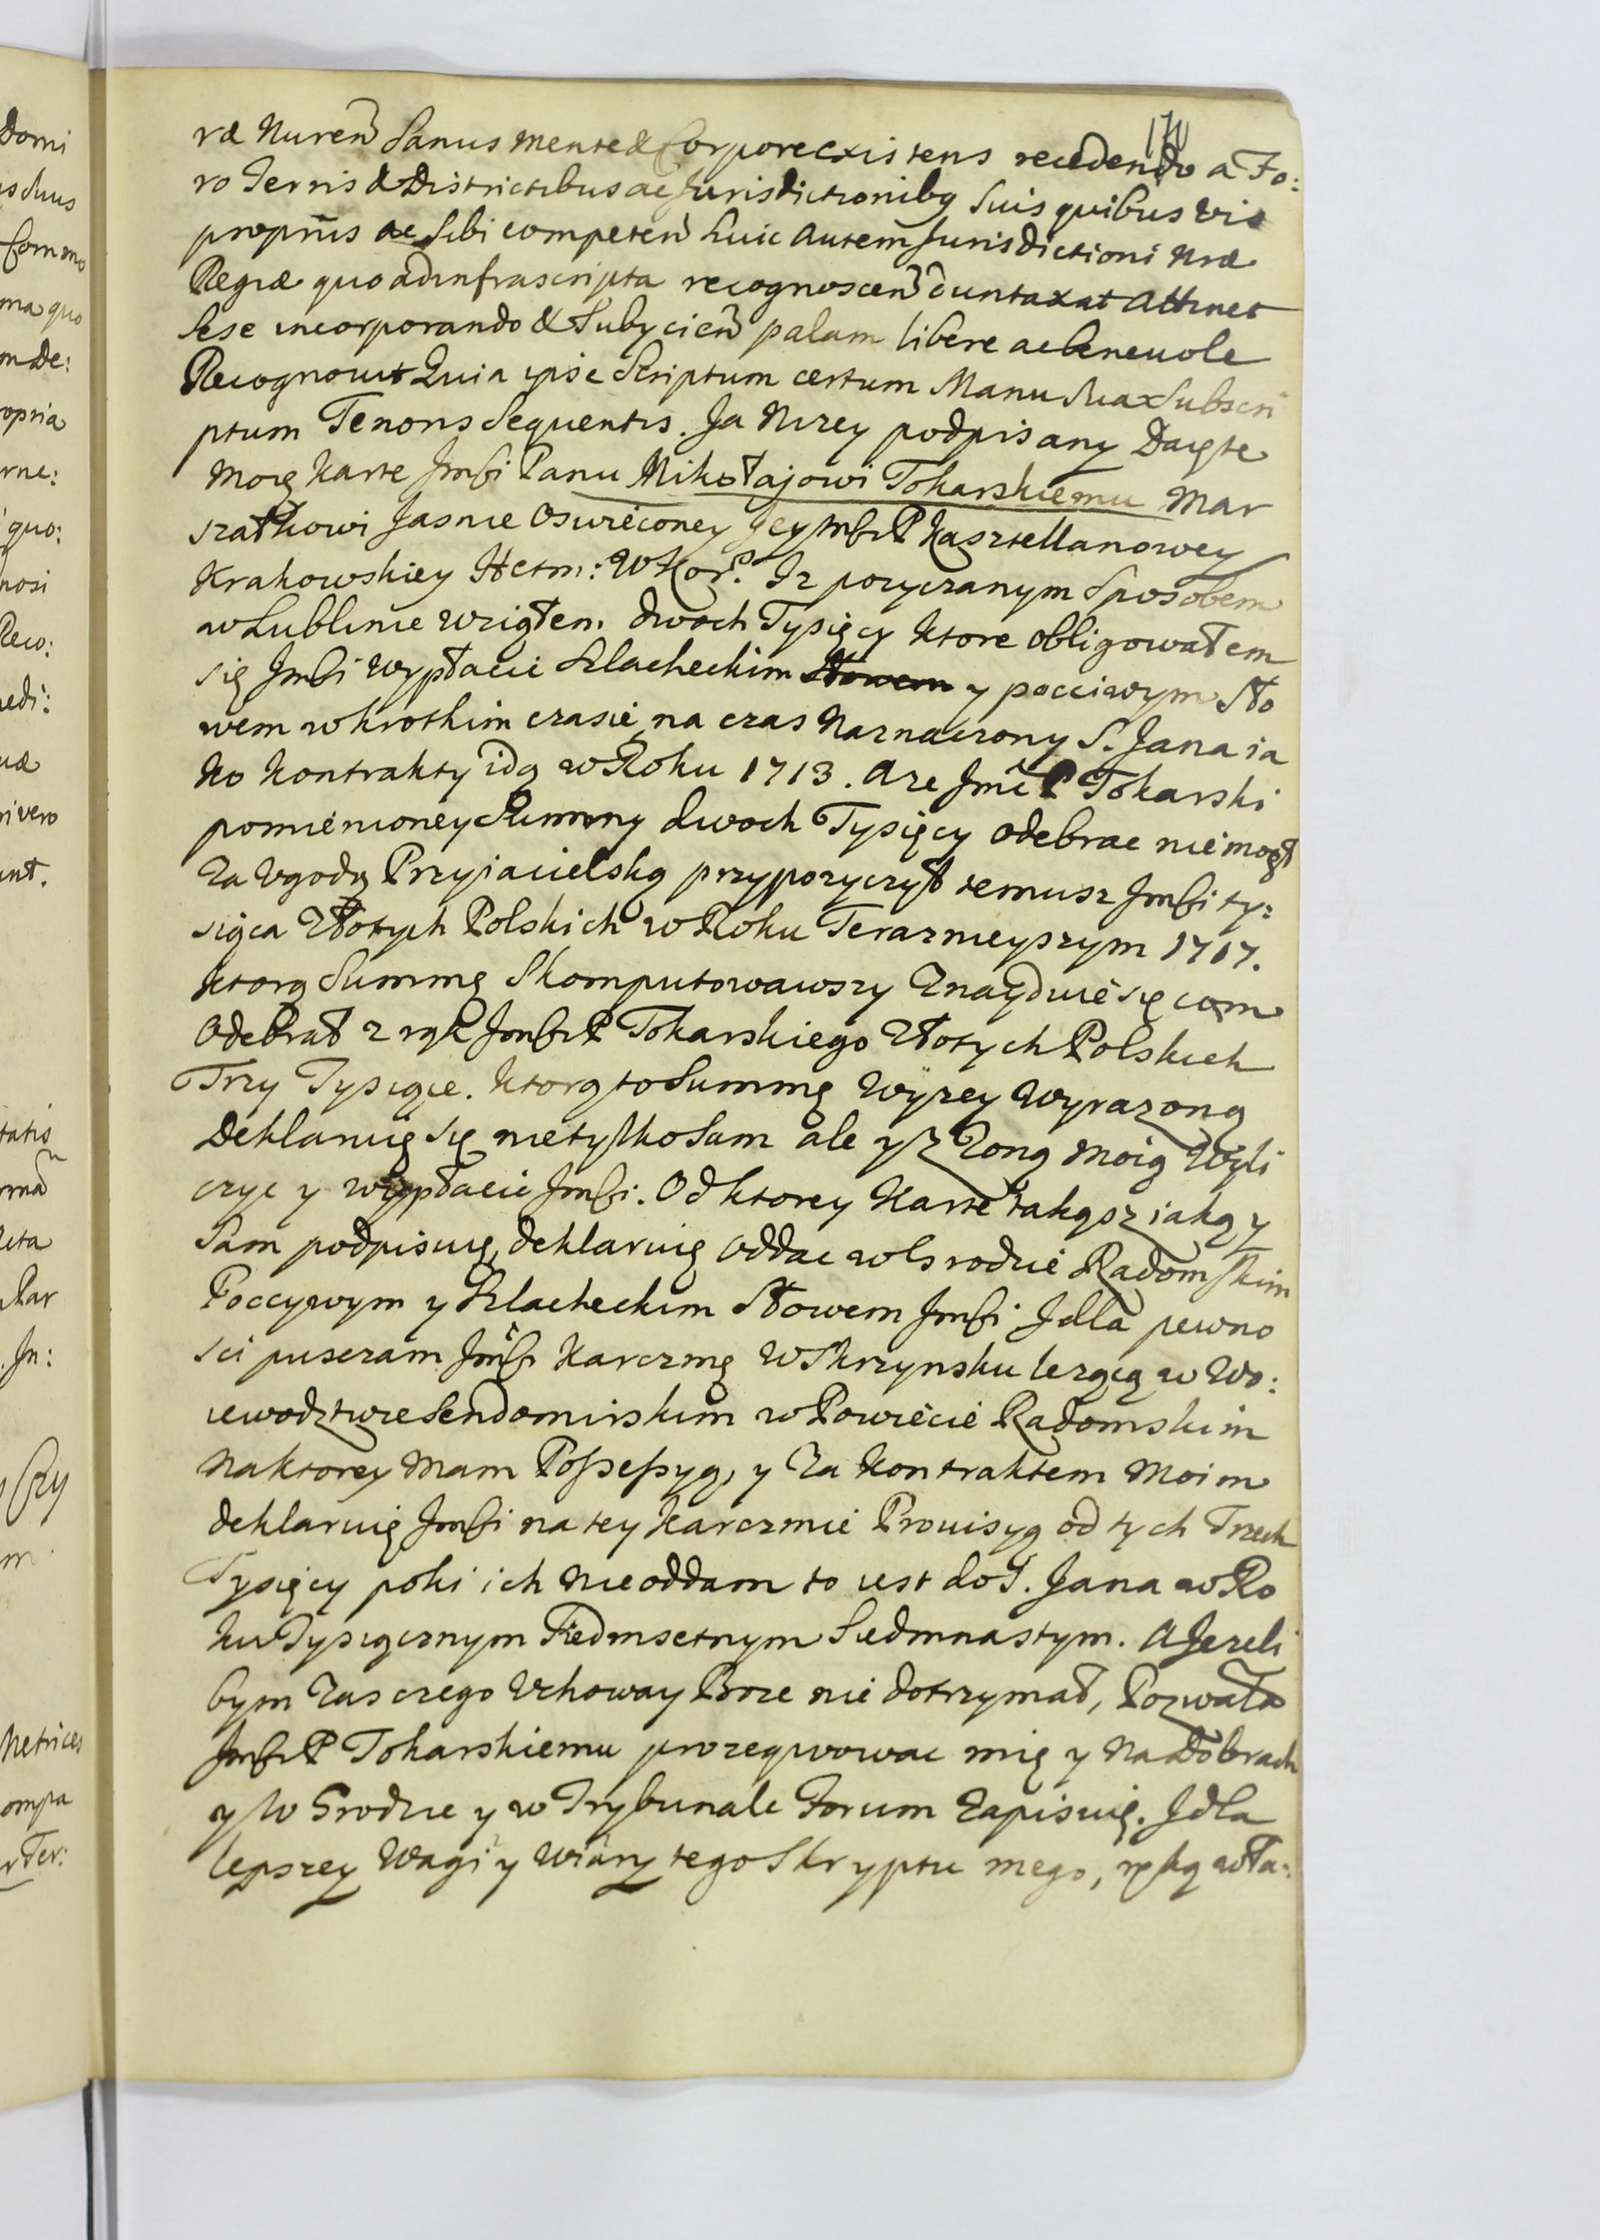 170
ræ Nuren Sanus mente & Corpore existens recedendo a Fo:
ro Terris & Districtibus ac Jurisdictionibq Suis quibus vis
proprijs ac Sibi competen huic autem Jurisdictioni Nræ
Regiæ quo ad infrascripta recognoscen duntaxat attinet
Sese incorporando & Subycien palam libere ac beneuole
Recognouit Quia ipse Scriptum certum Manu Sua Subscri
ptum Tenoris Sequentis. Ja Nizey podpisany Daię te
moię Karte Jmści Panu Mikołajowi Tokarskiemu Mar
szałkowi Jasnie Oswieconey Jey Mści P Kasztellanowey
Krakowskiey Hetm: W Kor. Iz pozyczanym Sposobem
w Lublinie wziąłem dwoch Tysięcy Ktore obligowałem
się Jmści wypłacic Szlacheckim Słowem y pocciwym Sło
wem w krotkim czasie, na czas Naznaczony S. Jana ia
ko kontrakty idą w Roku 1713. A ze Jmc P Tokarski
pomienioney Summy dwoch Tysięcy odebrac nie mogł
Za Zgodą Przyiacielską przypozyczył temusz Jmści ty:
siąca Złotych Polskich w Roku Terazneyszym 1717.
Ktorą Summę Skomputowawszy Znayduie się com
Odebrał z rąk Jmści P Tokarskiego Złotych Polskich
Trzy Tysiące. Ktorą to Summę Wyzey Wyrazoną
Deklaruię się nie tylko Sam ale y z Zoną Moią Wyli
czyc y wypłacic Jmści. Od ktorey Karte takąsz iaką y
Sam podpisuię, deklaruię Oddac w Grodzie Radomskim
Poccywym y Szlacheckim Słowem Jmści J dla pewno
sci puszczam Jmści Karczmę w Skrzynsku lezącą w Wo:
iewodztwie Sendomirskim w Powiecie Radomskim
Na ktorey Mam Possessyą, y Za Kontraktem Moim
deklaruię Jmści na tey Karczmie Prouisyą od tych Trzech
Tysięcy poki ich Nie oddam to iest do S. Jana w Ro
ku Tysiącznym Siedmsetnym Siedmnastym. A Jezeli
bym Zas czego Uchoway Boze nie dotrzymał, Pozwala
Jmści P Tokarskiemu prozeqwowac mię y Na Dobrach
y W Grodzie y w Trybunale Forum Zapisuię. J dla
lepszey Wagi y Wiary tego Skryptu mego, ręką wła: